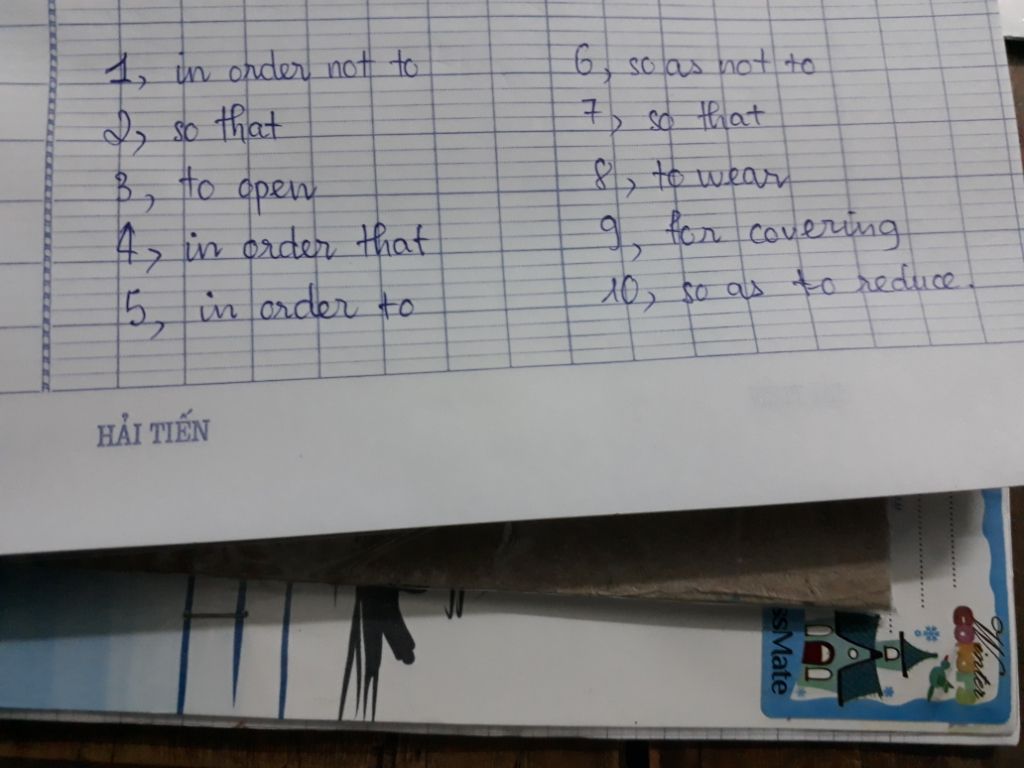 1, in order not to
2, so that
3, to open
4, in order that
5, in order to
6, so as not to
7, so that
8, to wear
9, for covering
10, so as to reduce.
HẢI TIẾN
ssMate
Winter